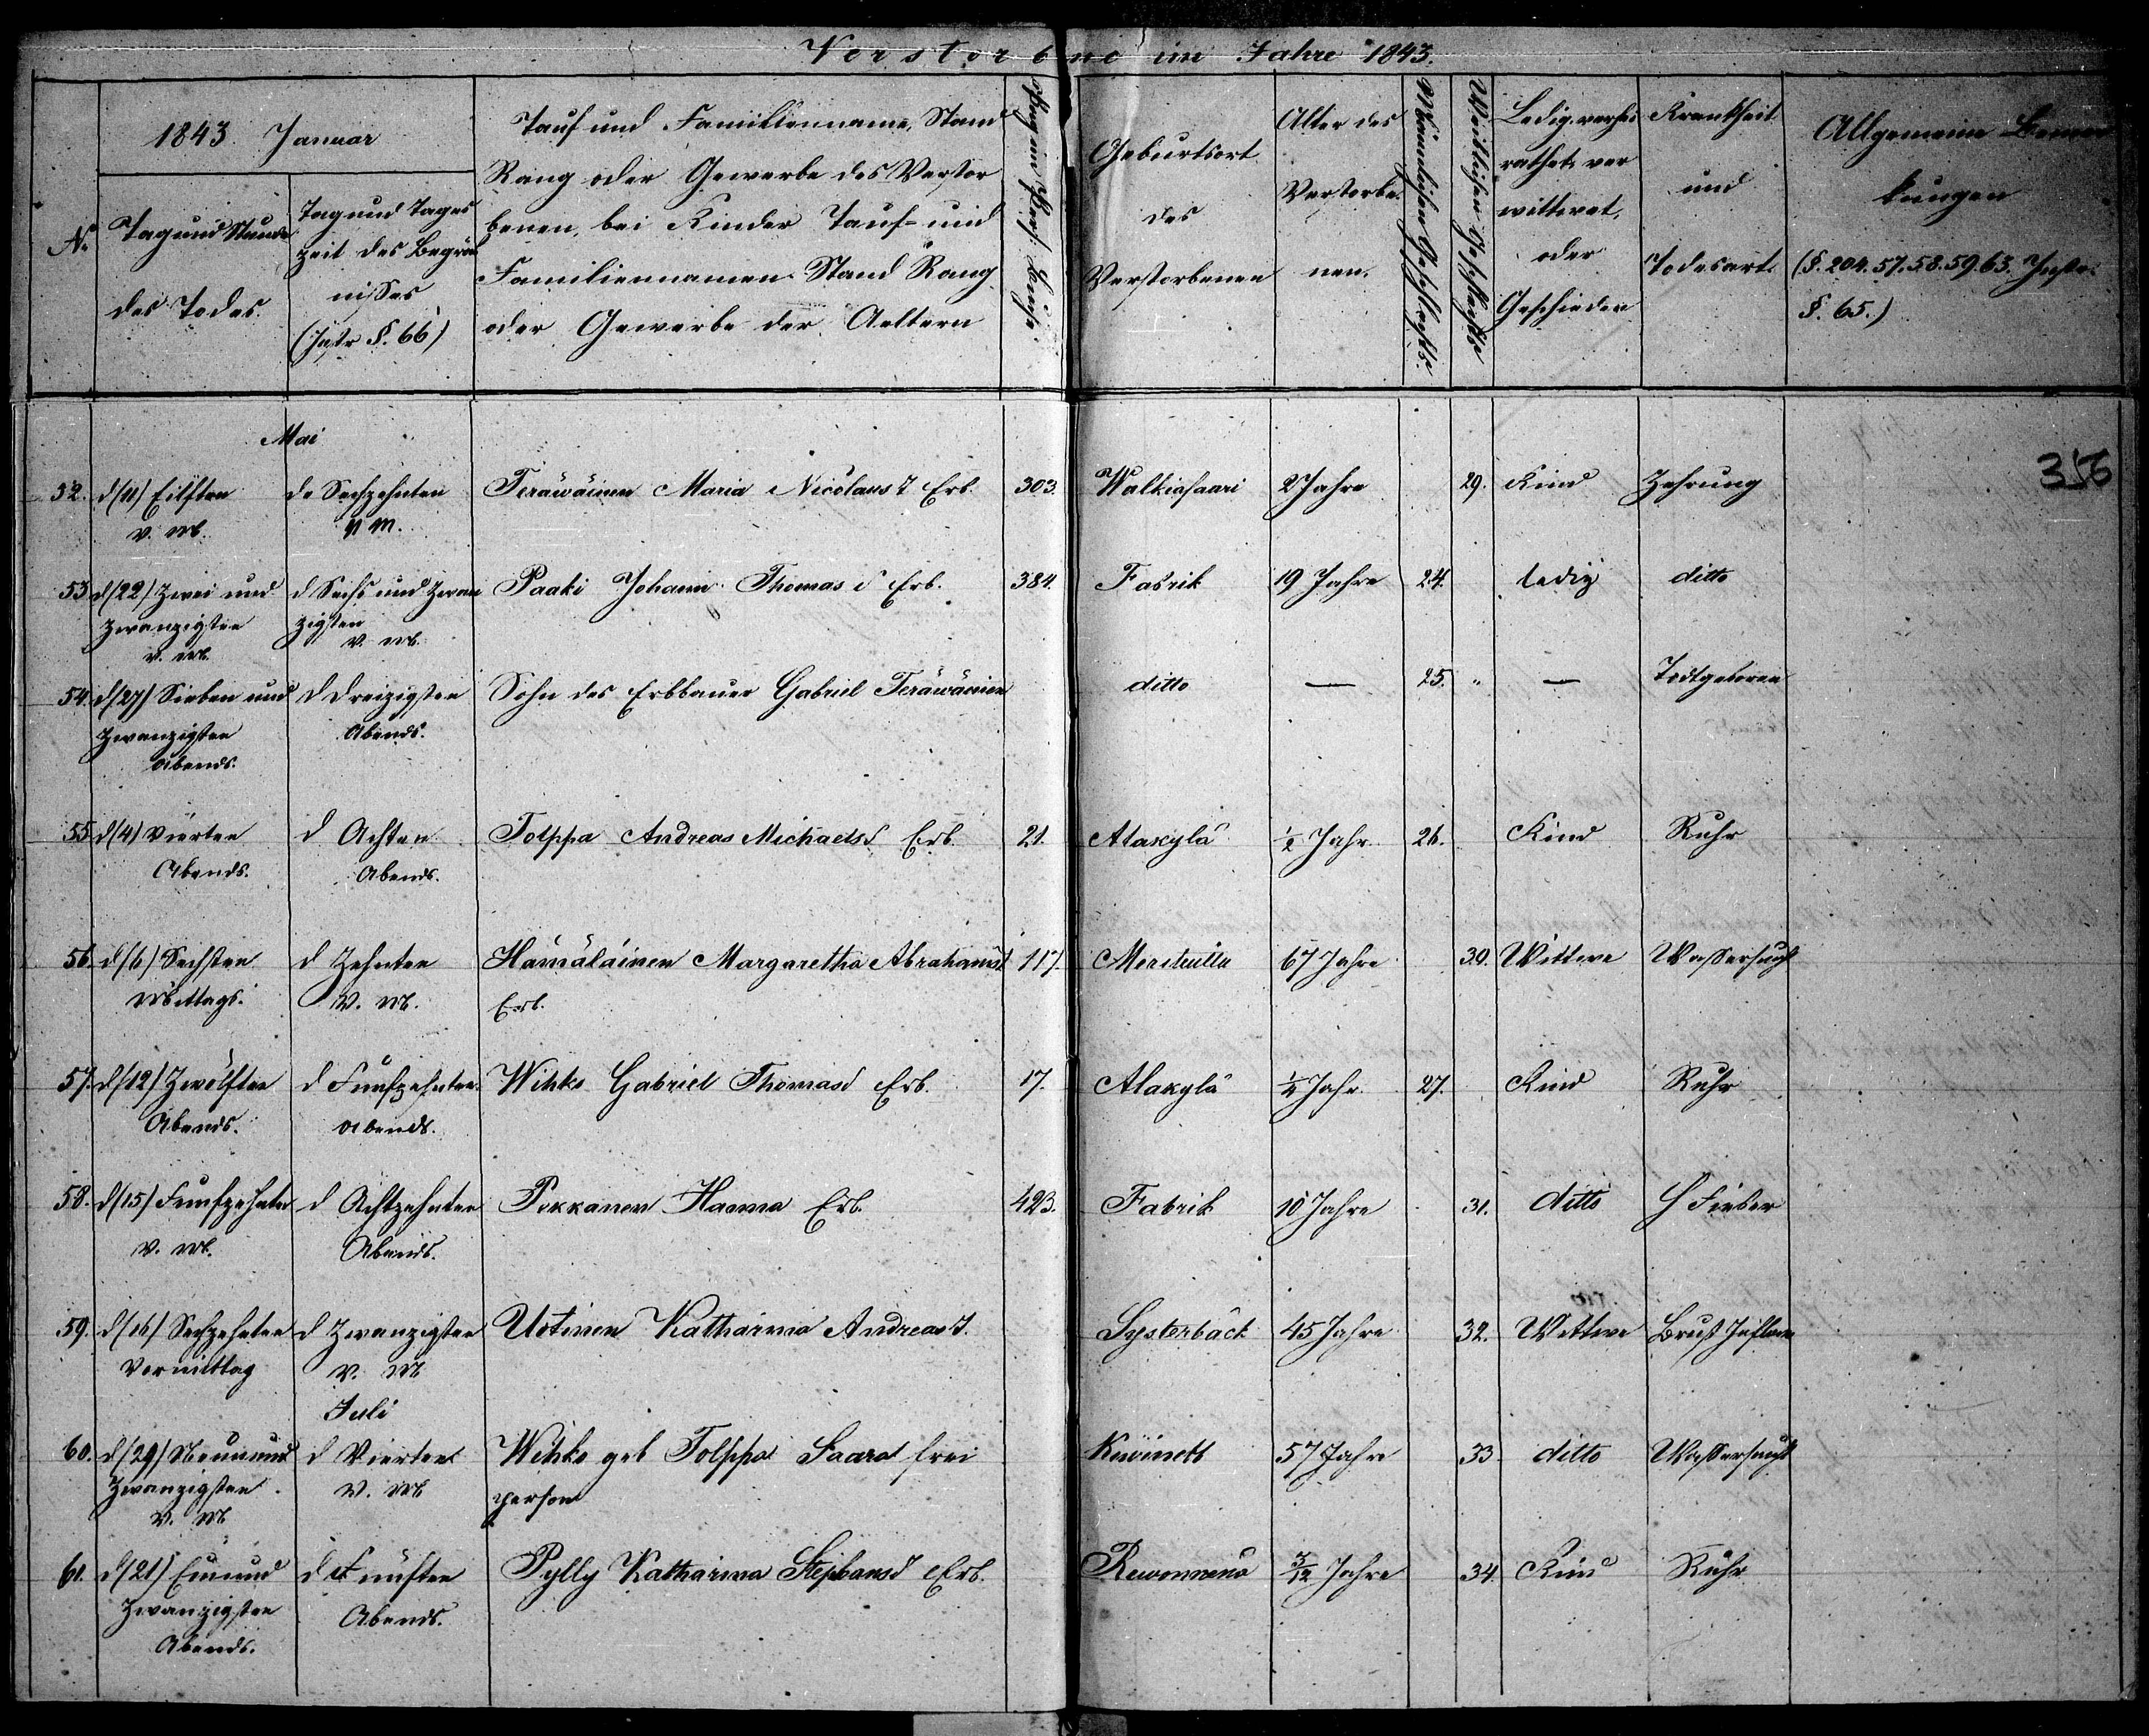 Verstorbene im Jahre 1843.
1843. Januar
No
Tag und Stunde
des Todes.
Tag und Tages
zeit des Begräb
nisses
(Instr §. 66)
Tauf und Familienname, Stand
Rang oder Gewerbe des Verstor
benen, bei Kinder Tauf- und
Familiennamen Stand Rang
oder Gewerbe der Aeltern
Geburtsort
des
Verstorbenen
Alter des
Verstorbe
nen.
Männlichen Geschlechts.
Weiblichen Geschlechts
Ledig, verhei
rathet, ver
wittwet,
oder
Geschieden
Krankheit
und
Todesart.
Allgemeine Bemer
kungen
(§. 204. 57. 58. 59. 63. Instr.
§. 65.)
Mai
356
52. d (11) Eilften d. Sechzehnten Teräwäinen Maria Nicolaus T Erb. 303. Walkiasaari 2 Jahre 29. Kind Zehrung
v. M. N M.
53. d (22) Zwei und d Sechs und Zwan Paaki Johann Thomas S Erb. 384. Fabrik 19 Jahre 24. ledig ditto
zwanzigsten zigsten
v. M. v. M.
54. d (27) Sieben und d Dreizigsten Sohn des Erbbauer Gabriel Teräwäinen ditto — 25. " — Todtgeboren
Zwanzigsten Abends.
Abends.
55. d (4) Vierten d Achten Tolppa Andreas Michaels S Erb. 21. Alakylä ½ Jahr 26. Kind Ruhr
Abends. Abends.
56. d (6) Sechsten d Zehnten Hämäläinen Margaretha Abrahams T 117. 67 Jahre 30. Wittwe Wassersucht
Mittags. V. M. Erb.
57. d (12) Zwölften d Funfzehnten Wihko Gabriel Thomas S Erb. 17. Alakylä ¼ Jahr 27. Kind Ruhr
Abends. Abends.
58. d (15) Funfzehnten d Achtzehnten Pekkanen Hanna Erb. 423. Fabrik 10 Jahre 31. ditto Fieber
V. M. Abends.
59. d (16) Sechzehnten d Zwanzigsten Uotinen Katharina Andreas T. Systerbäck 45 Jahre 32. Wittwe Brust
Vormittag V. M
Juli
60. d (29) Neun und d Vierten Wihko geb Tolppa Saara frei 57 Jahre 33 ditto Wassersucht
Zwanzigsten V. M person
V. M
61. d (21) Ein und d Fünften Pylly Katharina Stephans T Erb. 3/12 Jahre 34. Kind Ruhr
Zwanzigsten Abends.
Abends.